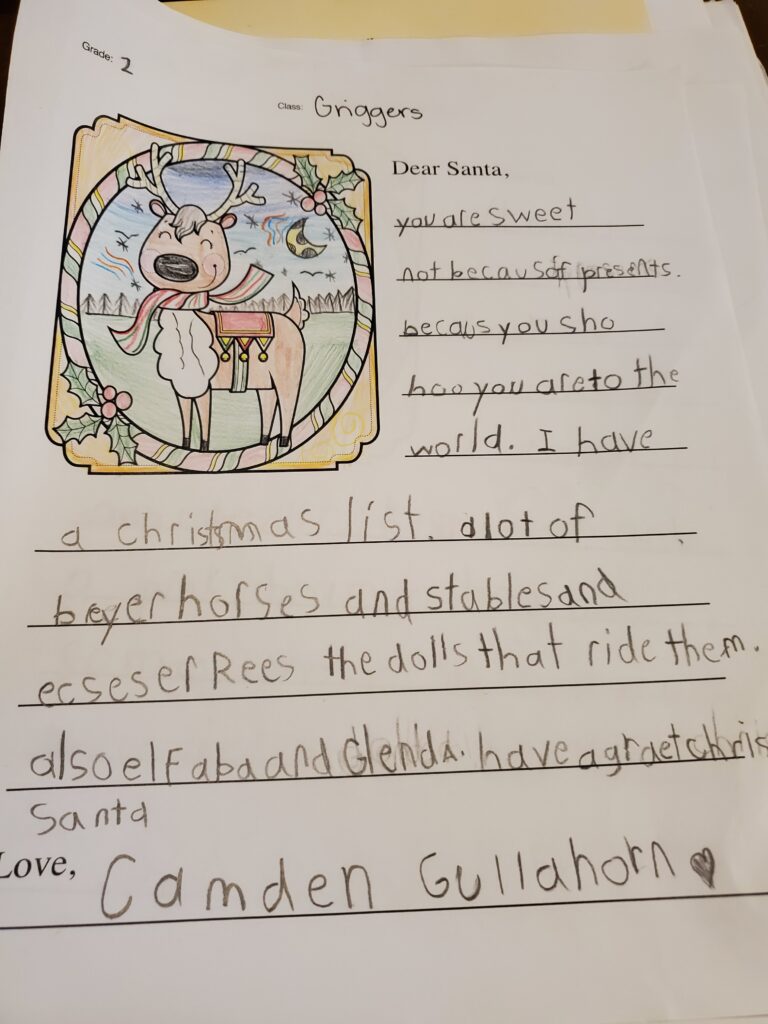 Grade: 2
Class: Griggers
Dear Santa,
you are sweet
not becausof presents.
becaus you sho
hoo you are to the
world. I have
a christmas list. alot of
beyer horses and stables and
ecseserRees the dolls that ride them.
also elFaba and Glenda. have a graet chris
Santa
Love, Camden Gullahorn